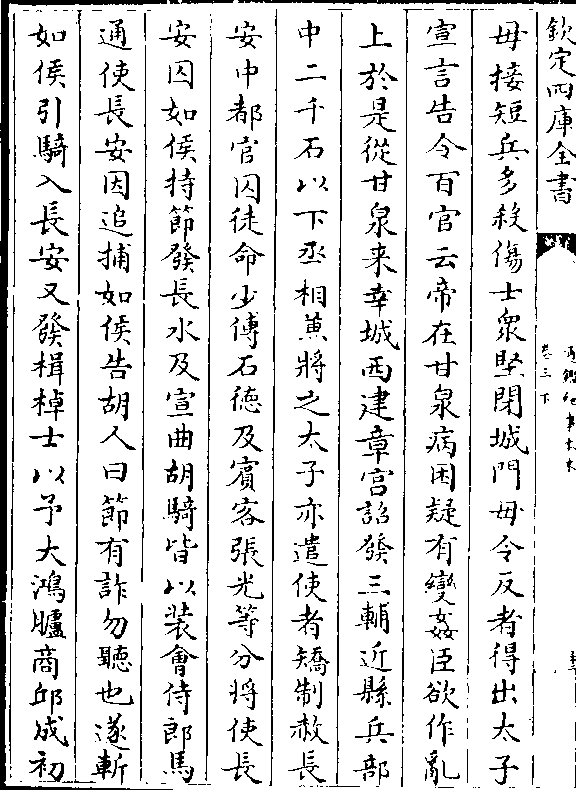 欽定四庫全書
卷三下
毋接短兵多殺傷士衆堅閉城門毋令反者得出太子
宣言告令百官云帝在甘泉病困疑有變姦臣欲作亂
上於是從甘泉来幸城西建章宫詔發三輔近縣兵部
中二千石以下丞相蕙將之太子亦遣使者矯制赦長
安中都官囚徒命少傅石徳及賓客張光等分將使長
安囚如侯持節發長水及宣曲胡騎皆以装會侍郎馬
通使長安因追捕如侯告胡人曰節有詐勿聽也遂斬
如侯引騎入長安又發楫棹士以予大鴻臚商邱成初